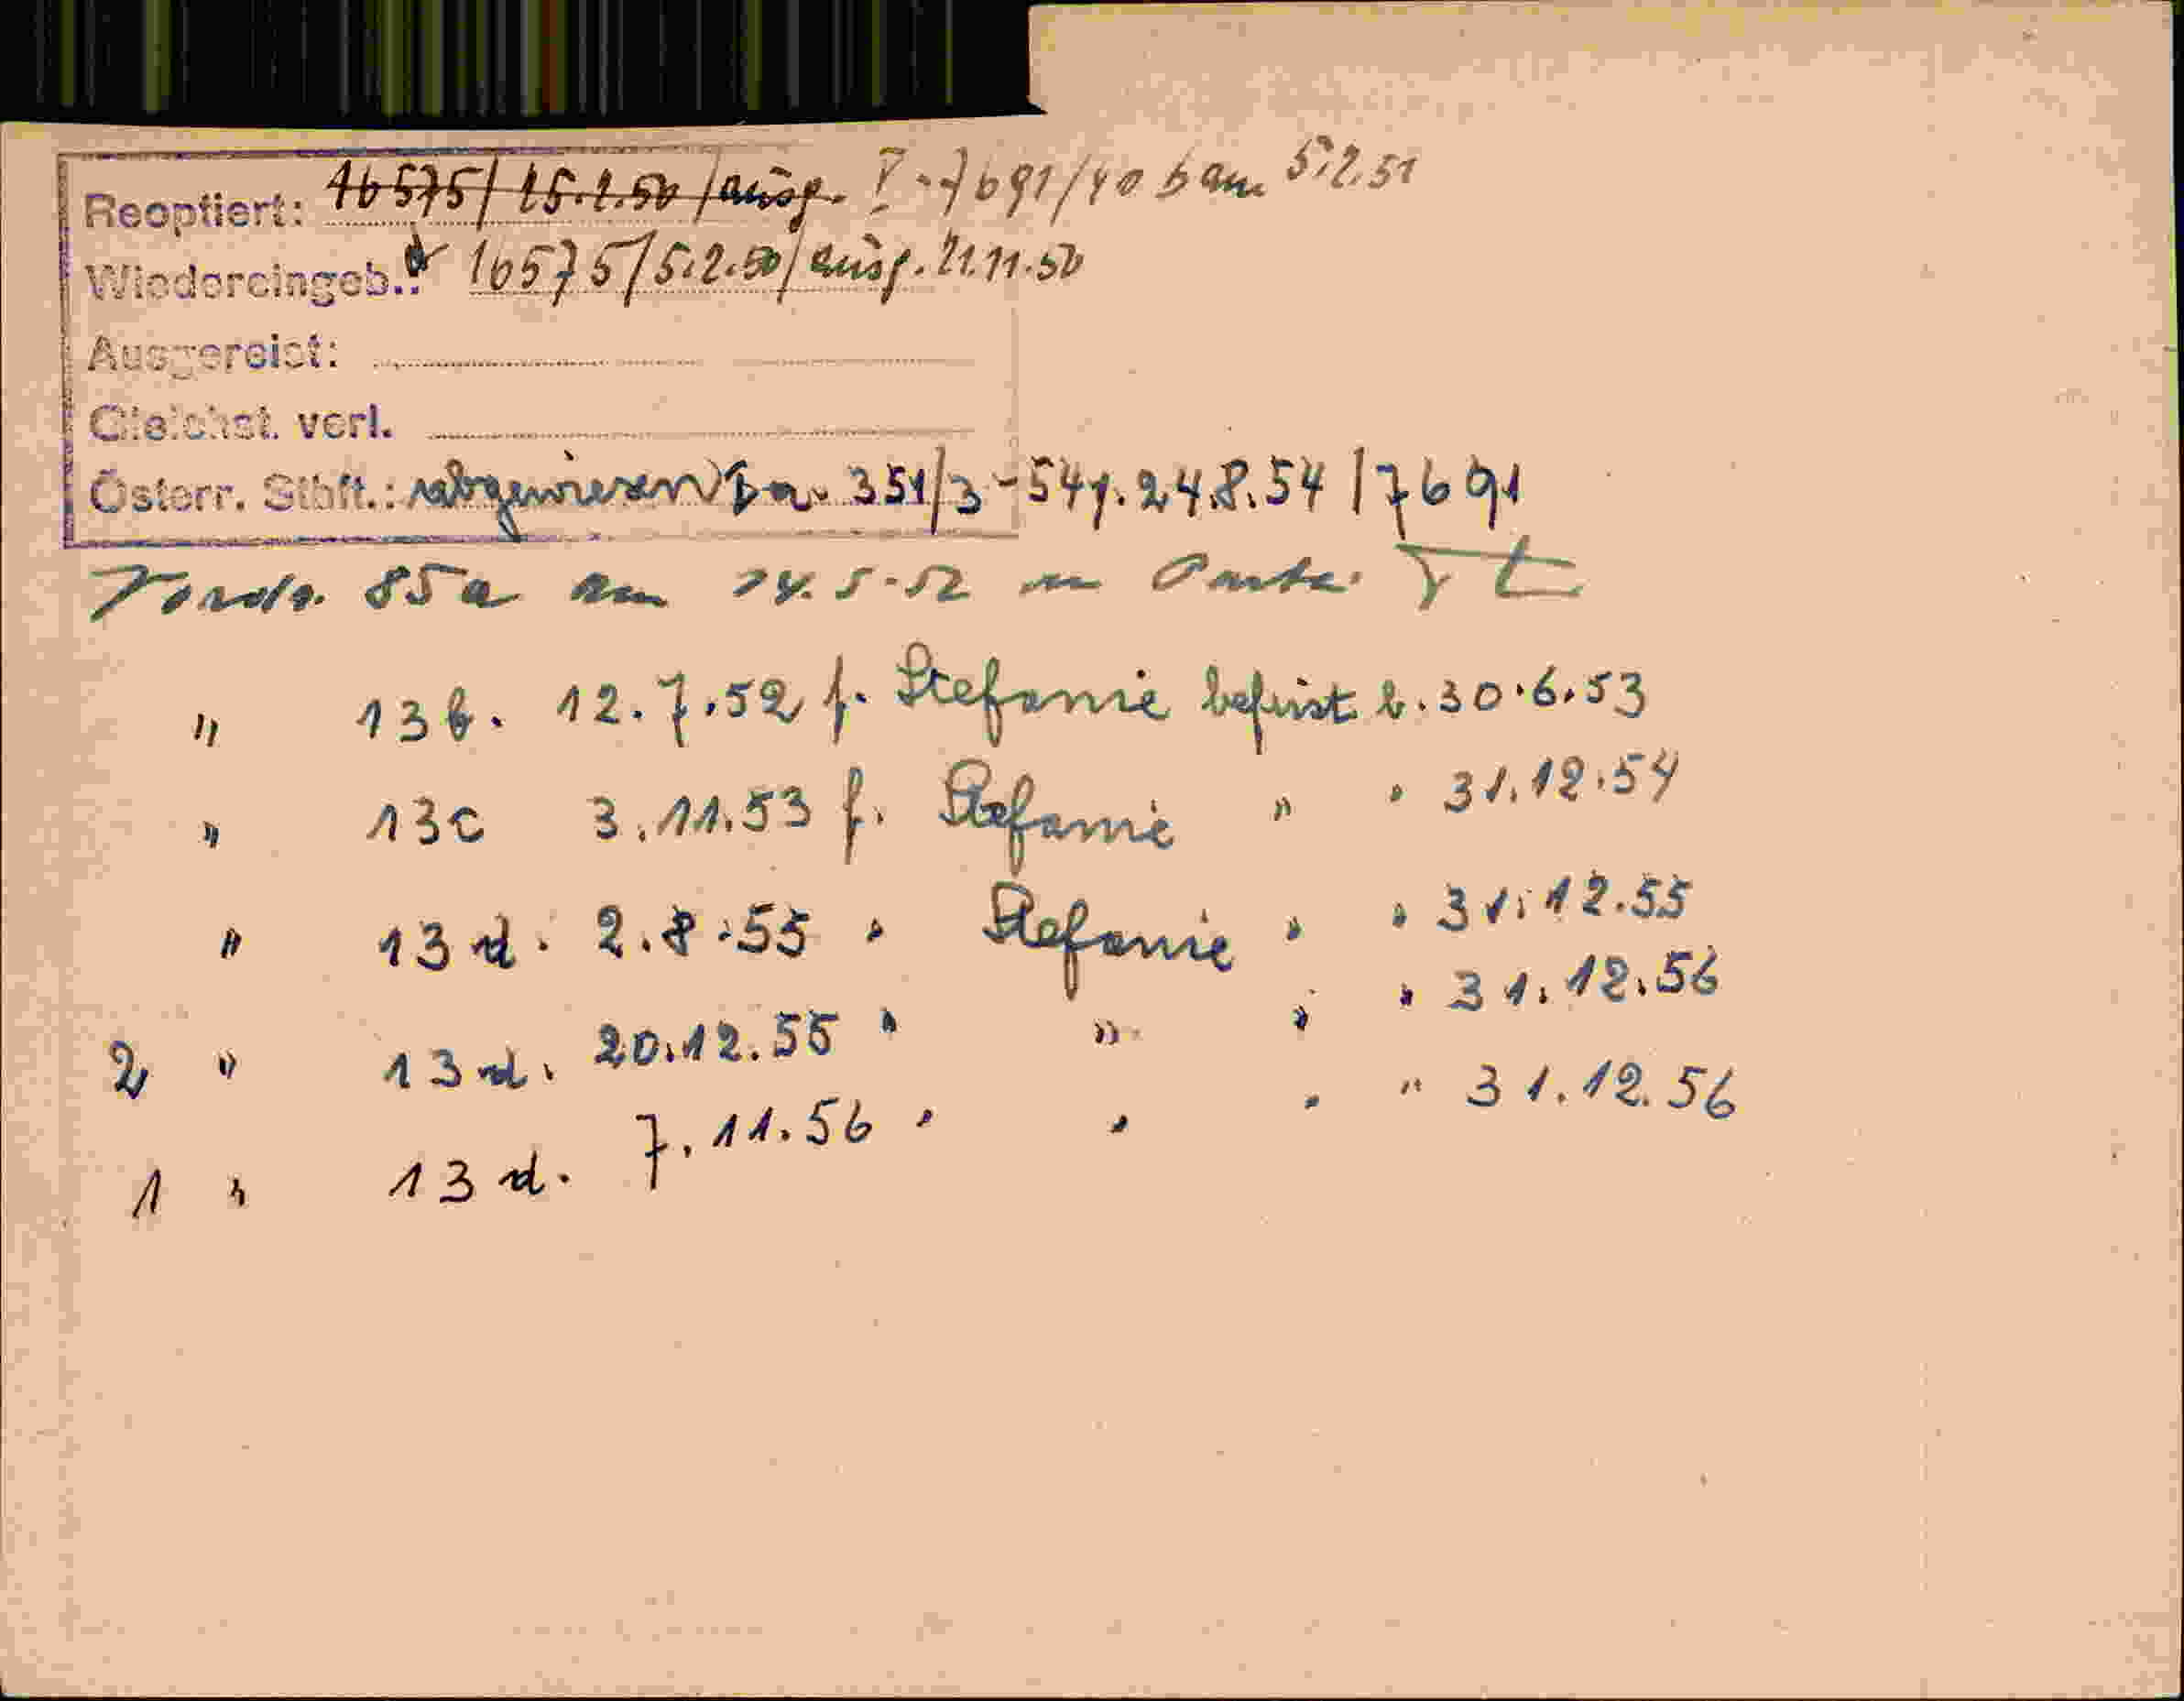 Reoptiert: 16575/15.2.50/ausg. I-7691/40 b am 5.2.51
Wiedereingeb.: 16575/5.2.50/ausg. 21.11.50
Ausgereist:
Gleichst. verl.
Österr. Stbft.: abgewiesen Ia. 351/3-54 v. 24.8.54/7691
85a am 14.5.52 an Partei
" 13b. 12.7.52 f. Stefanie befrist. b. 30.6.53
" 13c 3.11.53 f. Stefanie " " 31.12.54
" 13d. 2.8.55 " Stefanie " " 31.12.55
2 " 13d. 20.12.55 " " " " 31.12.56
1 " 13d. 7.11.56 " " " " 31.12.56